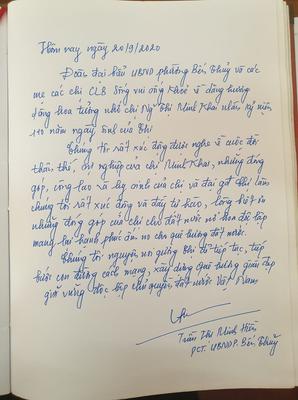 Hôm nay ngày 20/9/2020
Đoàn đại biểu UBND phường Bến Thủy và các
mẹ các chị CLB Sống vui sống khỏe về dâng hương
dâng hoa tưởng nhớ chị Ng~ Thị Minh Khai nhân kỷ niệm
110 năm ngày sinh của Chị
Chúng tôi rất xúc động được nghe về cuộc đời
thân thế, sự nghiệp của chị Minh Khai, những đóng
góp, công lao và hy sinh của chị và đại gđ Chị làm
chúng tôi rất xúc động và đầy tự hào, lòng biết ơn
những đóng góp của chị cho đất nước nở hoa độc lập
mang lại hạnh phúc ấm no cho quê hương đất nước.
Chúng tôi nguyện noi gương Chị để tiếp tục, tiếp
bước con đường cách mạng, xây dựng quê hương giàu đẹp
giữ vững độc lập chủ quyền đất nước Việt Nam
Trần Thị Minh Hiền
PCT. UBND P. Bến Thuỷ